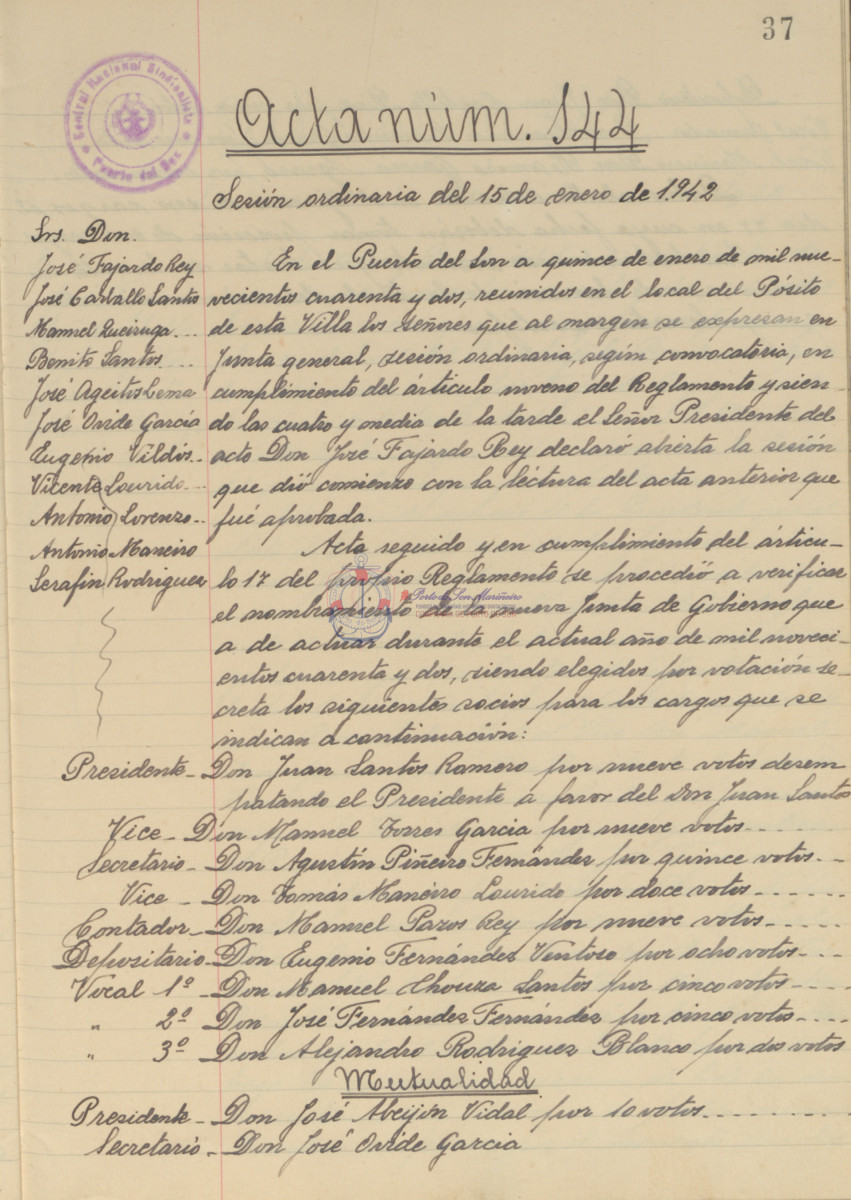 37
Central Nacional Sindicalista
Puerto del Son
Acta núm. 144
Sesión ordinaria del 15 de enero de 1.942
Srs. Don.
José Fajardo Rey
José Carballo Santos
Manuel Queiruga...
Benito Santos...
José Ageitos Lema
José Ovide García
Eugenio Vildós..
Vicente Lourido...
Antonio Lorenzo..
Antonio Maneiro
Serafín Rodriguez
En el Puerto del Son a quince de enero de mil nue-
vecientos cuarenta y dos, reunidos en el local del Pósito
de esta Villa los señores que al margen se expresan en
Junta general, sesión ordinaria, según convocatoria, en
cumplimiento del árticulo noveno del Reglamento y sien-
do las cuatro y media de la tarde el Señor Presidente del
acto Don José Fajardo Rey declaró abierta la sesión
que dió comienzo con la léctura del acta anterior que
fué aprobada.
Acto seguido y en cumplimiento del árticu-
lo 17 del propio Reglamento se procedió a verificar
el nombramiento de la nueva Junta de Gobierno que
a de actuar durante el actual año de mil noveci-
entos cuarenta y dos, siendo elegidos por votación se-
creta los siguientes socios para los cargos que se
indican a continuación:
Presidente - Don Juan Santos Romero por nueve votos desem
patando el Presidente a favor del Don Juan Santos
Vice - Don Manuel Torres Garcia por nueve votos.....
Secretario - Don Agustín Piñeiro Fernández por quince votos..
Vice - Don Tomás Maneiro Lourido por doce votos......
Contador - Don Manuel Pazos Rey por nueve votos.....
Depositario - Don Eugenio Fernández Ventoso por ocho votos...
Vocal 1º - Don Manuel Chouza Santos por cinco votos....
" 2º Don José Fernández Fernández por cinco votos....
" 3º Don Alejandro Rodriguez Blanco por dos votos
Mutualidad
Presidente - Don José Abeijón Vidal por 10 votos........
Secretario - Don José Ovide Garcia
Porto do Son Mariñeiro